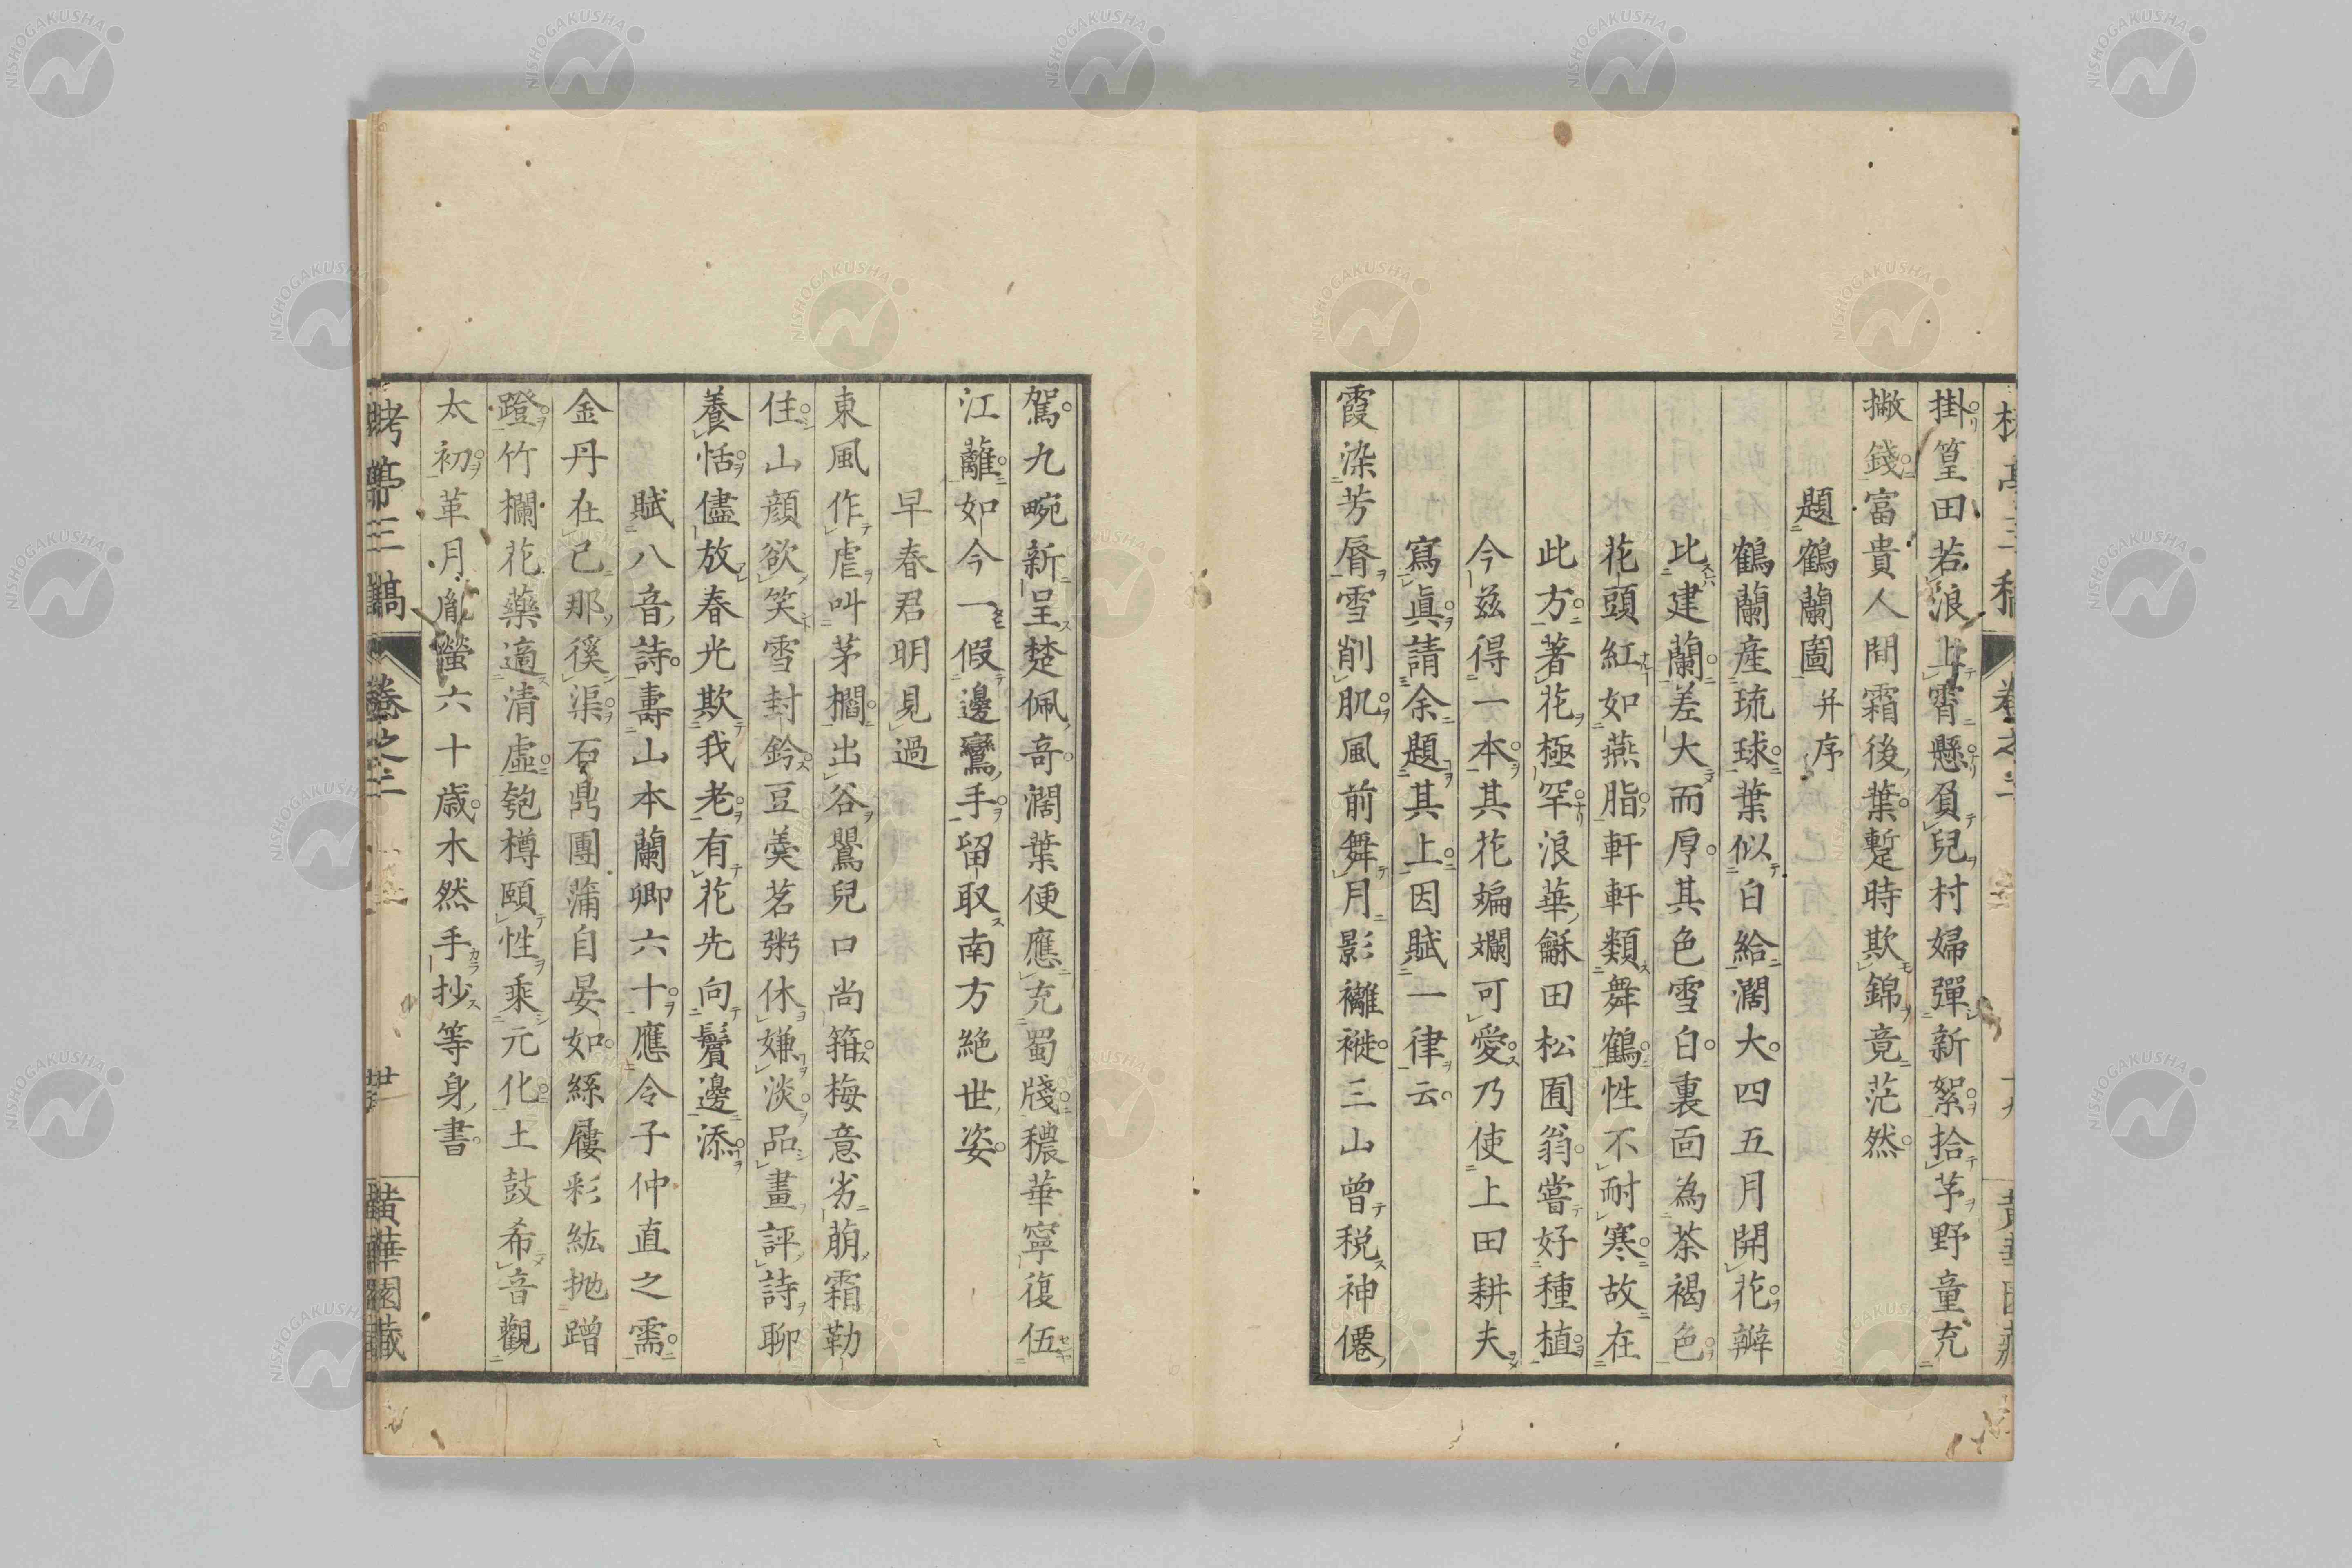 掛篁田若浪上霄懸負兒村婦彈新絮拾芧野童充
撇錢富貴人間霜後葉蹔時欺錦竟茫然
題鶴蘭圖并序
鶴蘭産琉球葉似白給濶大四五月開花辧
比建蘭差大而厚其色雪白裏面為茶褐色
花頭紅如燕脂軒軒類舞鶴性不耐寒故在
此方著花極罕浪華龢田松囿翁嘗好種植
今兹得一本其花斒斕可愛乃使上田耕夫
寫眞請余題其上因賦一律云
霞染芳脣雪削肌風前舞月影襳褷三山曾税神僊
駕九畹新呈楚佩奇濶葉便應充蜀牋穠華寧復伍
江蘺如今一假邊鸞手留取南方絶世姿
早春君明見過
東風作虐叫茅櫩出谷鸎兒口尚箝梅意劣萠霜勒
住山顔欲笑雪封鈐豆羮茗粥休嫌淡品畫評詩聊
養恬儘放春光欺我老有花先向鬢邊添
賦八音詩壽山本蘭卿六十應令子仲直之需
金丹在己那徯渠石鼎團蒲自晏如絲屨彩紘抛蹭
蹬竹欄花藥適清虛匏樽頤性乘元化土鼓希音觀
太初革月胤螢六十歳木然手抄等身書
栲亭三稿 卷之二 黄華園藏